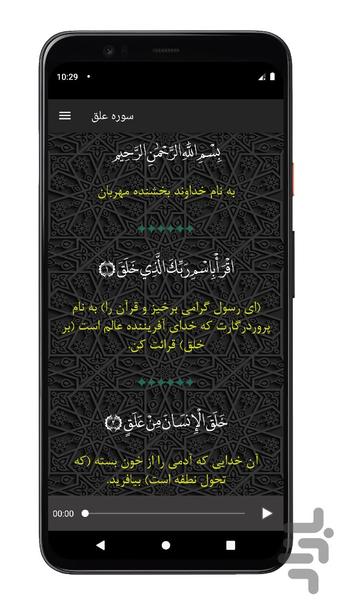 10:29
سوره علق
بِسْمِ اللَّهِ الرَّحْمَٰنِ الرَّحِيمِ
به نام خداوند بخشنده مهربان
اقْرَأْ بِاسْمِ رَبِّكَ الَّذِي خَلَقَ ﴿١﴾
(ای رسول گرامی برخیز و قرآن را) به نام
پروردگارت که خدای آفریننده عالم است (بر
خلق) قرائت کن.
خَلَقَ الْإِنْسَانَ مِنْ عَلَقٍ ﴿٢﴾
آن خدایی که آدمی را از خون بسته (که
تحول نطفه است) بیافرید.
00:00
بازار